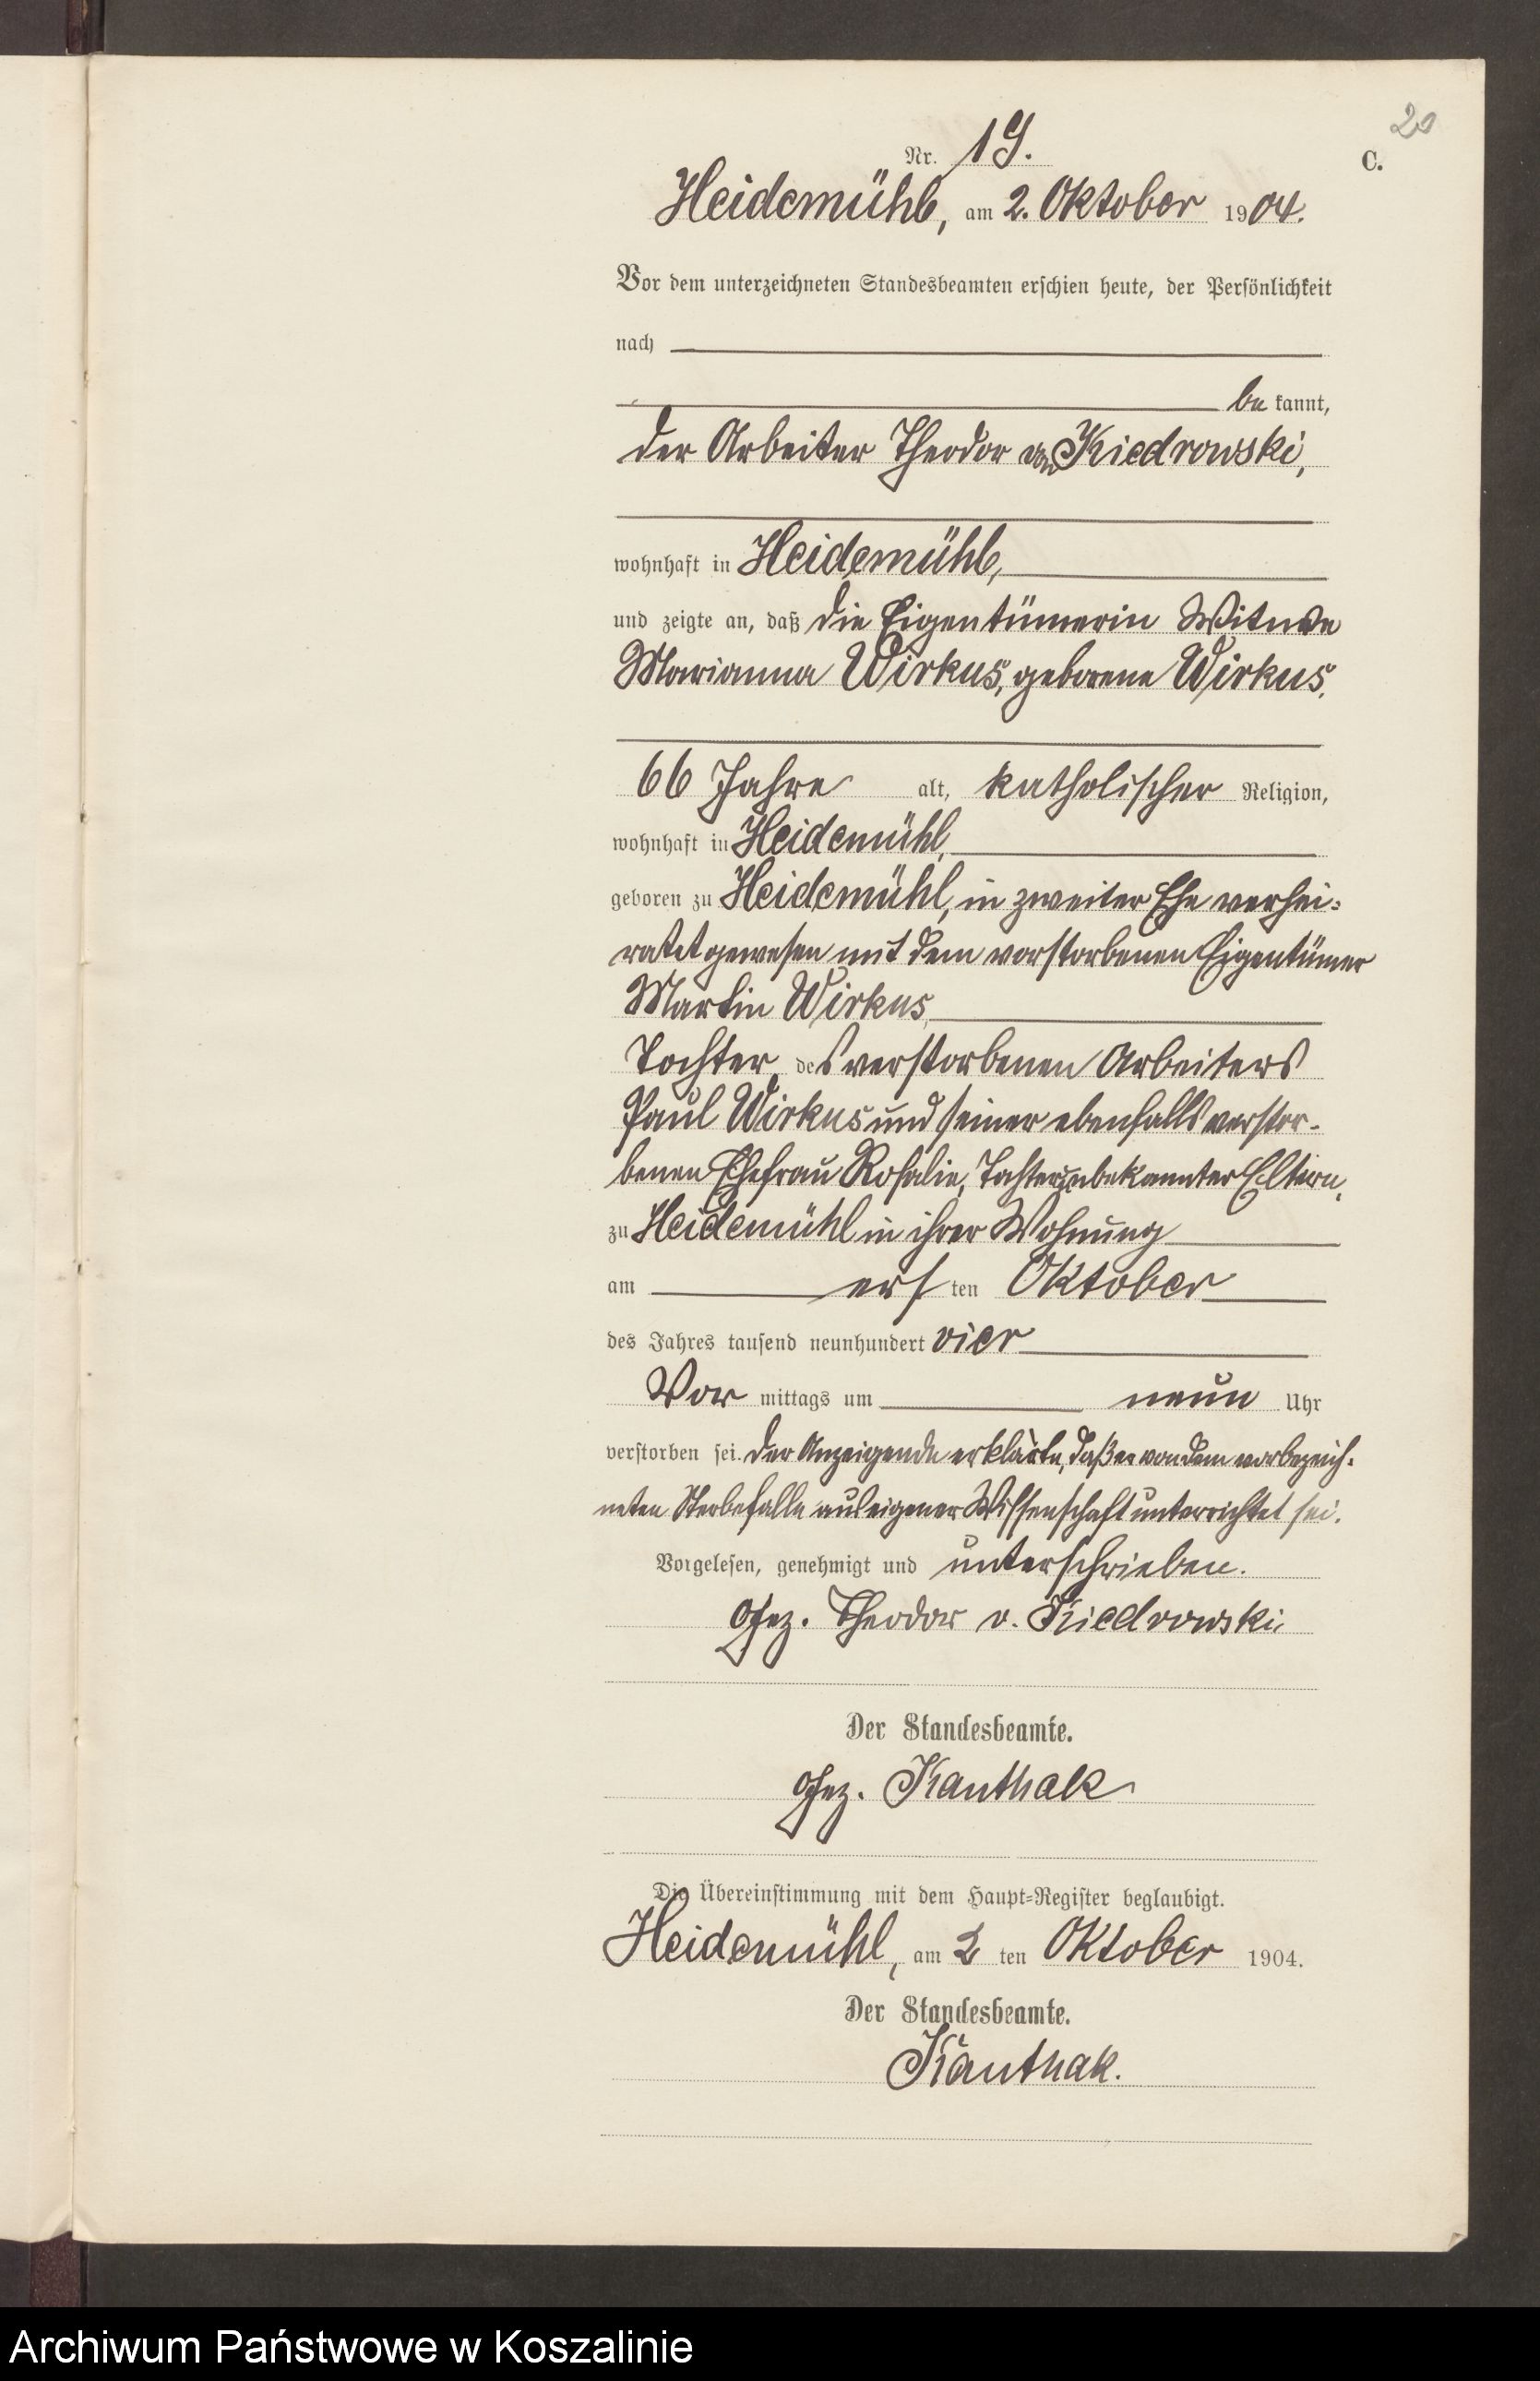 20
C.
Nr. 19.
Heidemühl, am 2. Oktober 1904.
Vor dem unterzeichneten Standesbeamten erschien heute, der Persönlichkeit
nach
be kannt,
der Arbeiter Theodor von Kiedrowski,
wohnhaft in Heidemühl,
und zeigte an, daß die Eigentümerin Witwe
Marianna Wirkus, geborene Wirkus,
66 Jahre alt, katholischer Religion,
wohnhaft in Heidemühl,
geboren zu Heidemühl, in zweiter Ehe verhei-
ratet gewesen mit dem verstorbenen Eigentümer
Martin Wirkus,
Tochter des verstorbenen Arbeiters
Paul Wirkus und seiner ebenfalls verstor-
benen Ehefrau Rosalie, Tochter unbekannter Eltern,
zu Heidemühl in ihrer Wohnung
am ersten Oktober
des Jahres tausend neunhundert vier
Vor mittags um neun Uhr
verstorben sei. Der Anzeigende erklärte, daß er von dem vorbezeich-
neten Sterbefalle aus eigener Wissenschaft unterrichtet sei.
Vorgelesen, genehmigt und unterschrieben.
Gez. Theodor v. Kiedrowski
Der Standesbeamte.
Gez. Kanthak
Die Übereinstimmung mit dem Haupt-Register beglaubigt.
Heidemühl, am 2 ten Oktober 1904.
Der Standesbeamte.
Kanthak.
Archiwum Państwowe w Koszalinie